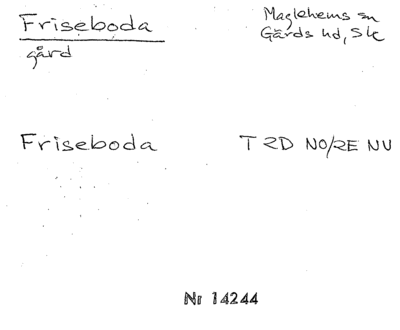 Friseboda
gård
Maglehems sn
Gärds hd, Sk
Friseboda
T 2D NO/2E NV
Nr 14244